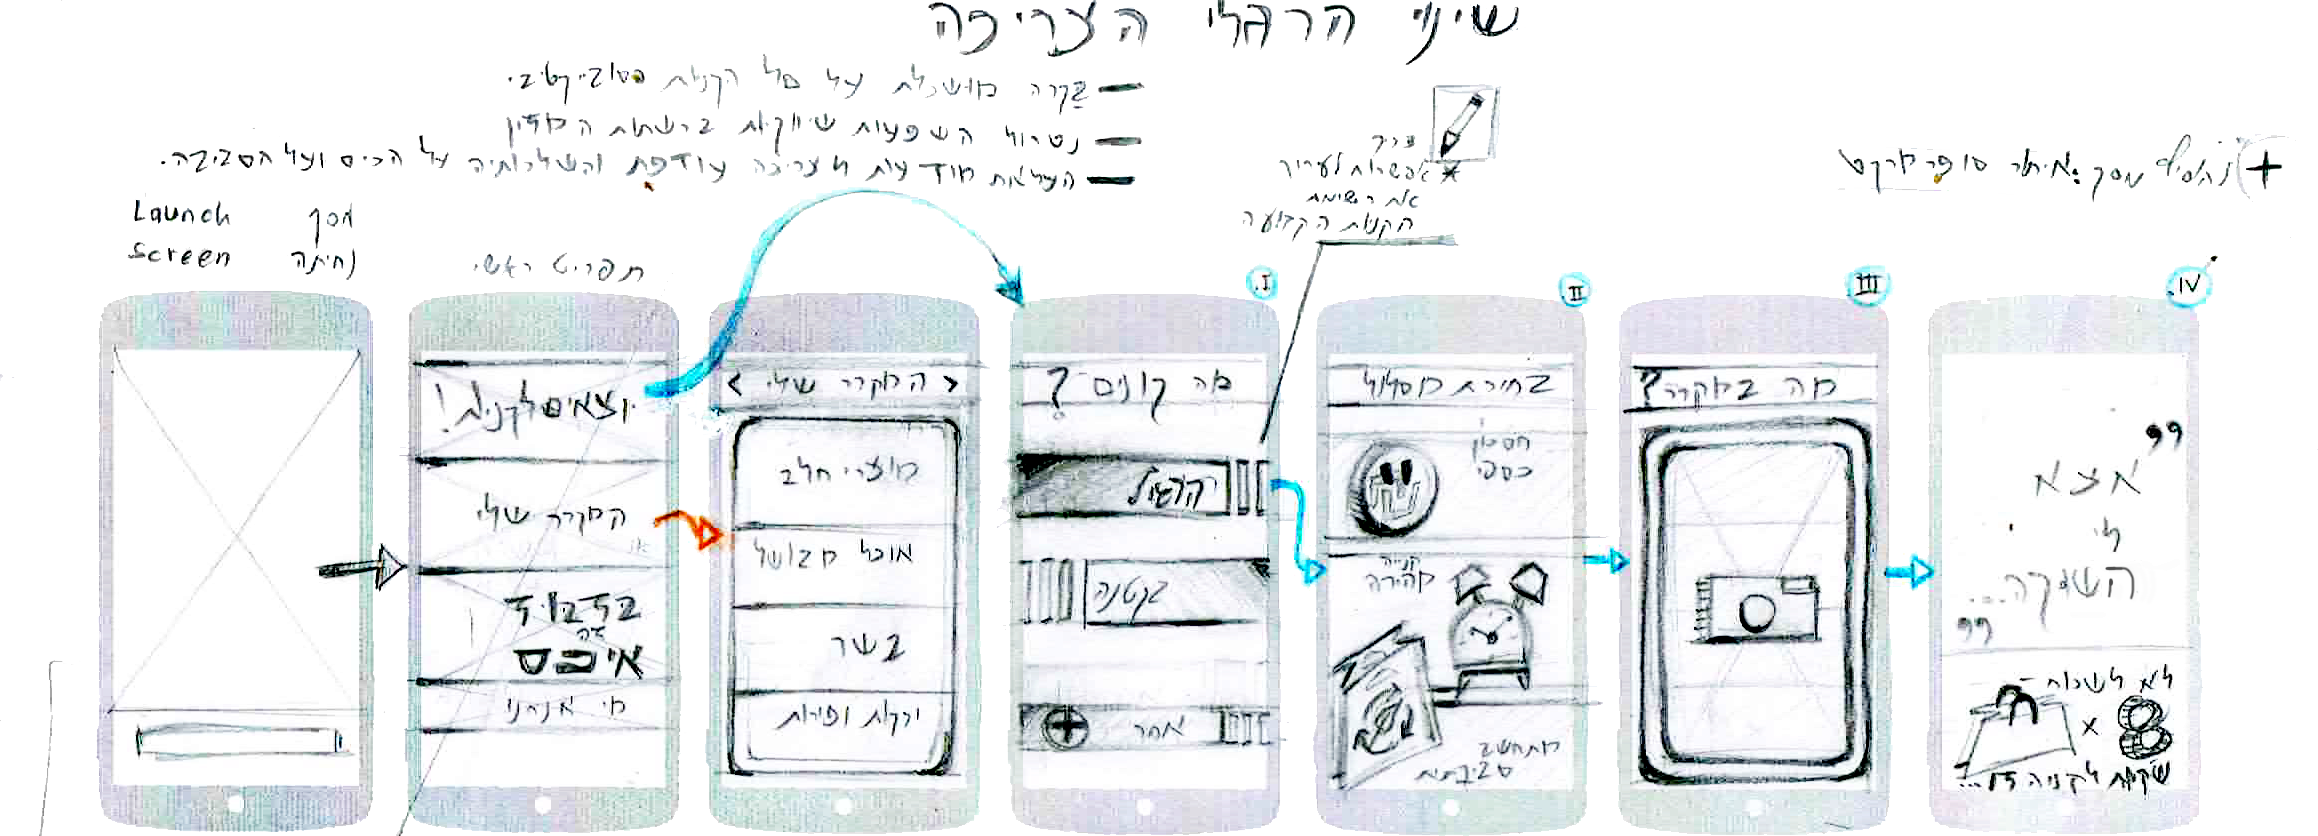 שינוי הרגלי הצריכה
בקרה מושכלת על סל הקניות הסובייקטיבי.
נטרול השפעות שיווקיות ברשתות המזון
העלאת מודעות לצריכה עודפת והשלכותיה על הכיס ועל הסביבה.
צריך
אפשרות לערוך
את רשימת
הקניות הקבועה
+ להוסיף מסך: איתור סופרמרקט
Launch מסך
Screen נחיתה
תפריט ראשי
יוצאים לקניות!
המקרר שלי
בזבוז
זה
איכס
מי אנחנו
< המקרר שלי >
מוצרי חלב
אוכל מבושל
בשר
ירקות ופירות
I.
מה קונים?
בקטנה
אחר
II
בחירת מסלול
חסכון
כספי
קנייה
מהירה
מתחשב
סביבתית
III
מה במקרר?
IV.
"אצא
לי
השוקה..."
לא לשכוח -
x 8
שקיות לקניה זו...